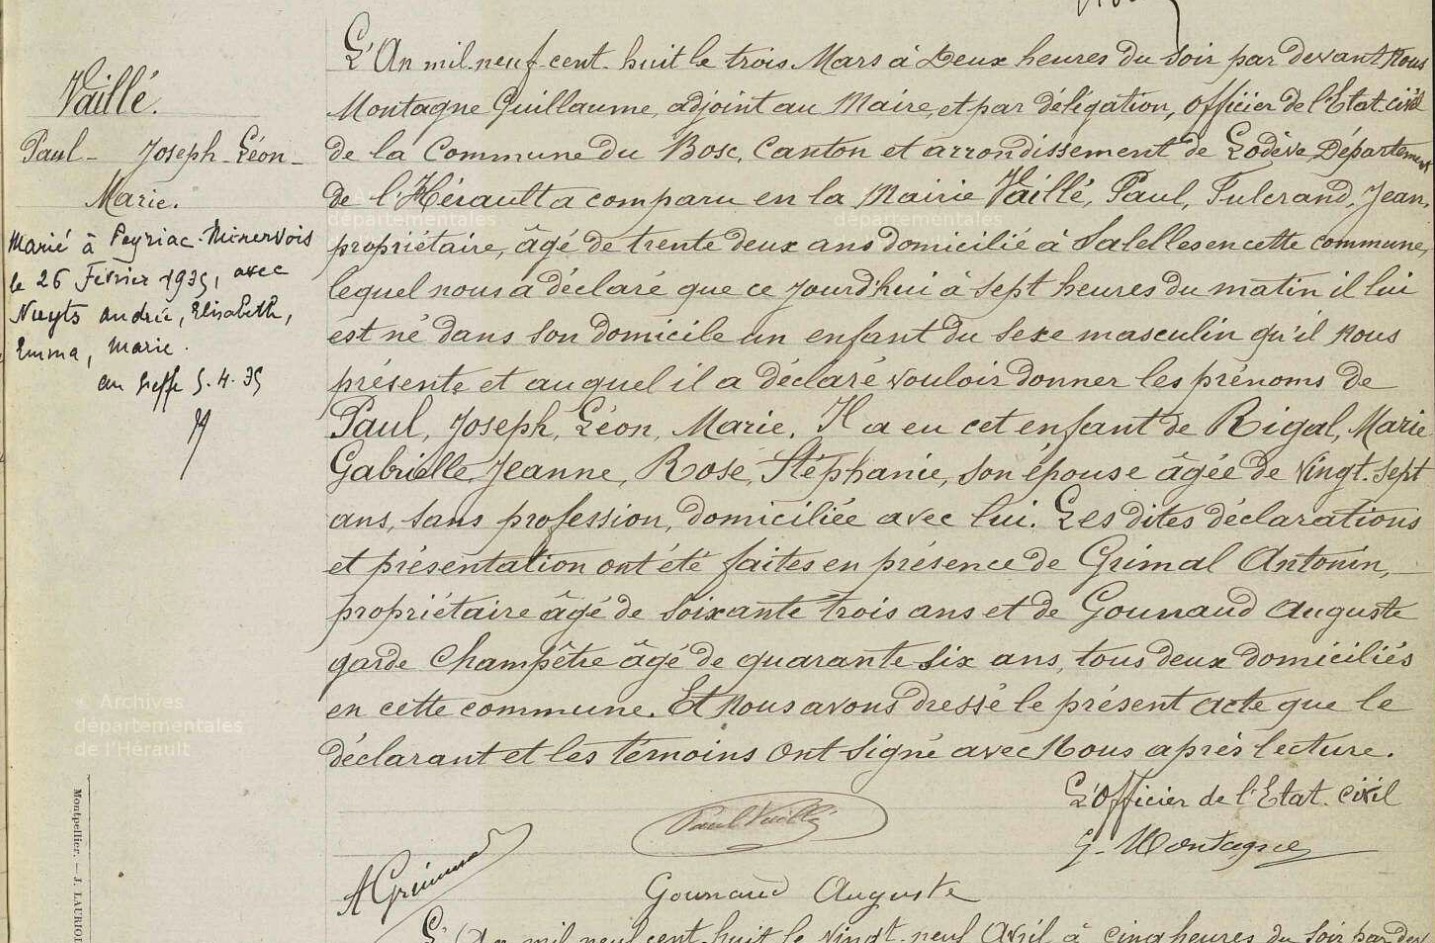 Vaillé.
Paul - Joseph - Léon -
Marie.
Marié à Peyriac-Minervois
le 26 Février 1935, avec
Nuyts andrée, Elisabeth,
Emma, Marie.
au Greffe 5.4.35
L'An mil neuf cent huit le trois Mars à Deux heures du soir par devant nous
Montagne Guillaume, adjoint au Maire, et par délégation, Officier de l'Etat civil
de la Commune du Bosc, Canton et arrondissement de Lodève, Département
de l'Hérault a comparu en la Mairie Vaillé, Paul, Fulcrand, Jean,
propriétaire, âgé de trente deux ans domicilié à Salelles en cette commune,
lequel nous a déclaré que ce jourd'hui à sept heures du matin il lui
est né dans son domicile un enfant du sexe masculin qu'il nous
présente et auquel il a déclaré vouloir donner les prénoms de
Paul, Joseph, Léon, Marie. Il a eu cet enfant de Rigal, Marie
Gabrielle, Jeanne, Rose, Stéphanie, son épouse âgée de vingt-sept
ans, sans profession, domiciliée avec lui. Les dites déclarations
et présentation ont été faites en présence de Grimal Antonin,
propriétaire âgé de soixante trois ans et de Gounaud Auguste
garde Champêtre âgé de quarante six ans, tous deux domiciliés
en cette commune. Et nous avons dressé le présent acte que le
déclarant et les témoins ont signé avec Nous après lecture.
L'Officier de l'Etat civil
Paul Vaillé
G. Montagne
A Grimal
Gounaud Auguste
L'An mil neuf cent huit le vingt neuf Avril à cinq heures du soir par dev
© Archives
départementales
de l'Hérault
départementales
départementales
Montpellier. — J. LAURIOL